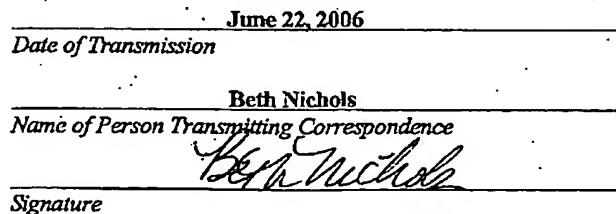 June 22, 2006
Date of Transmission
Beth Nichols
Name of Person Transmitting Correspondence
Beth Nichols
Signature